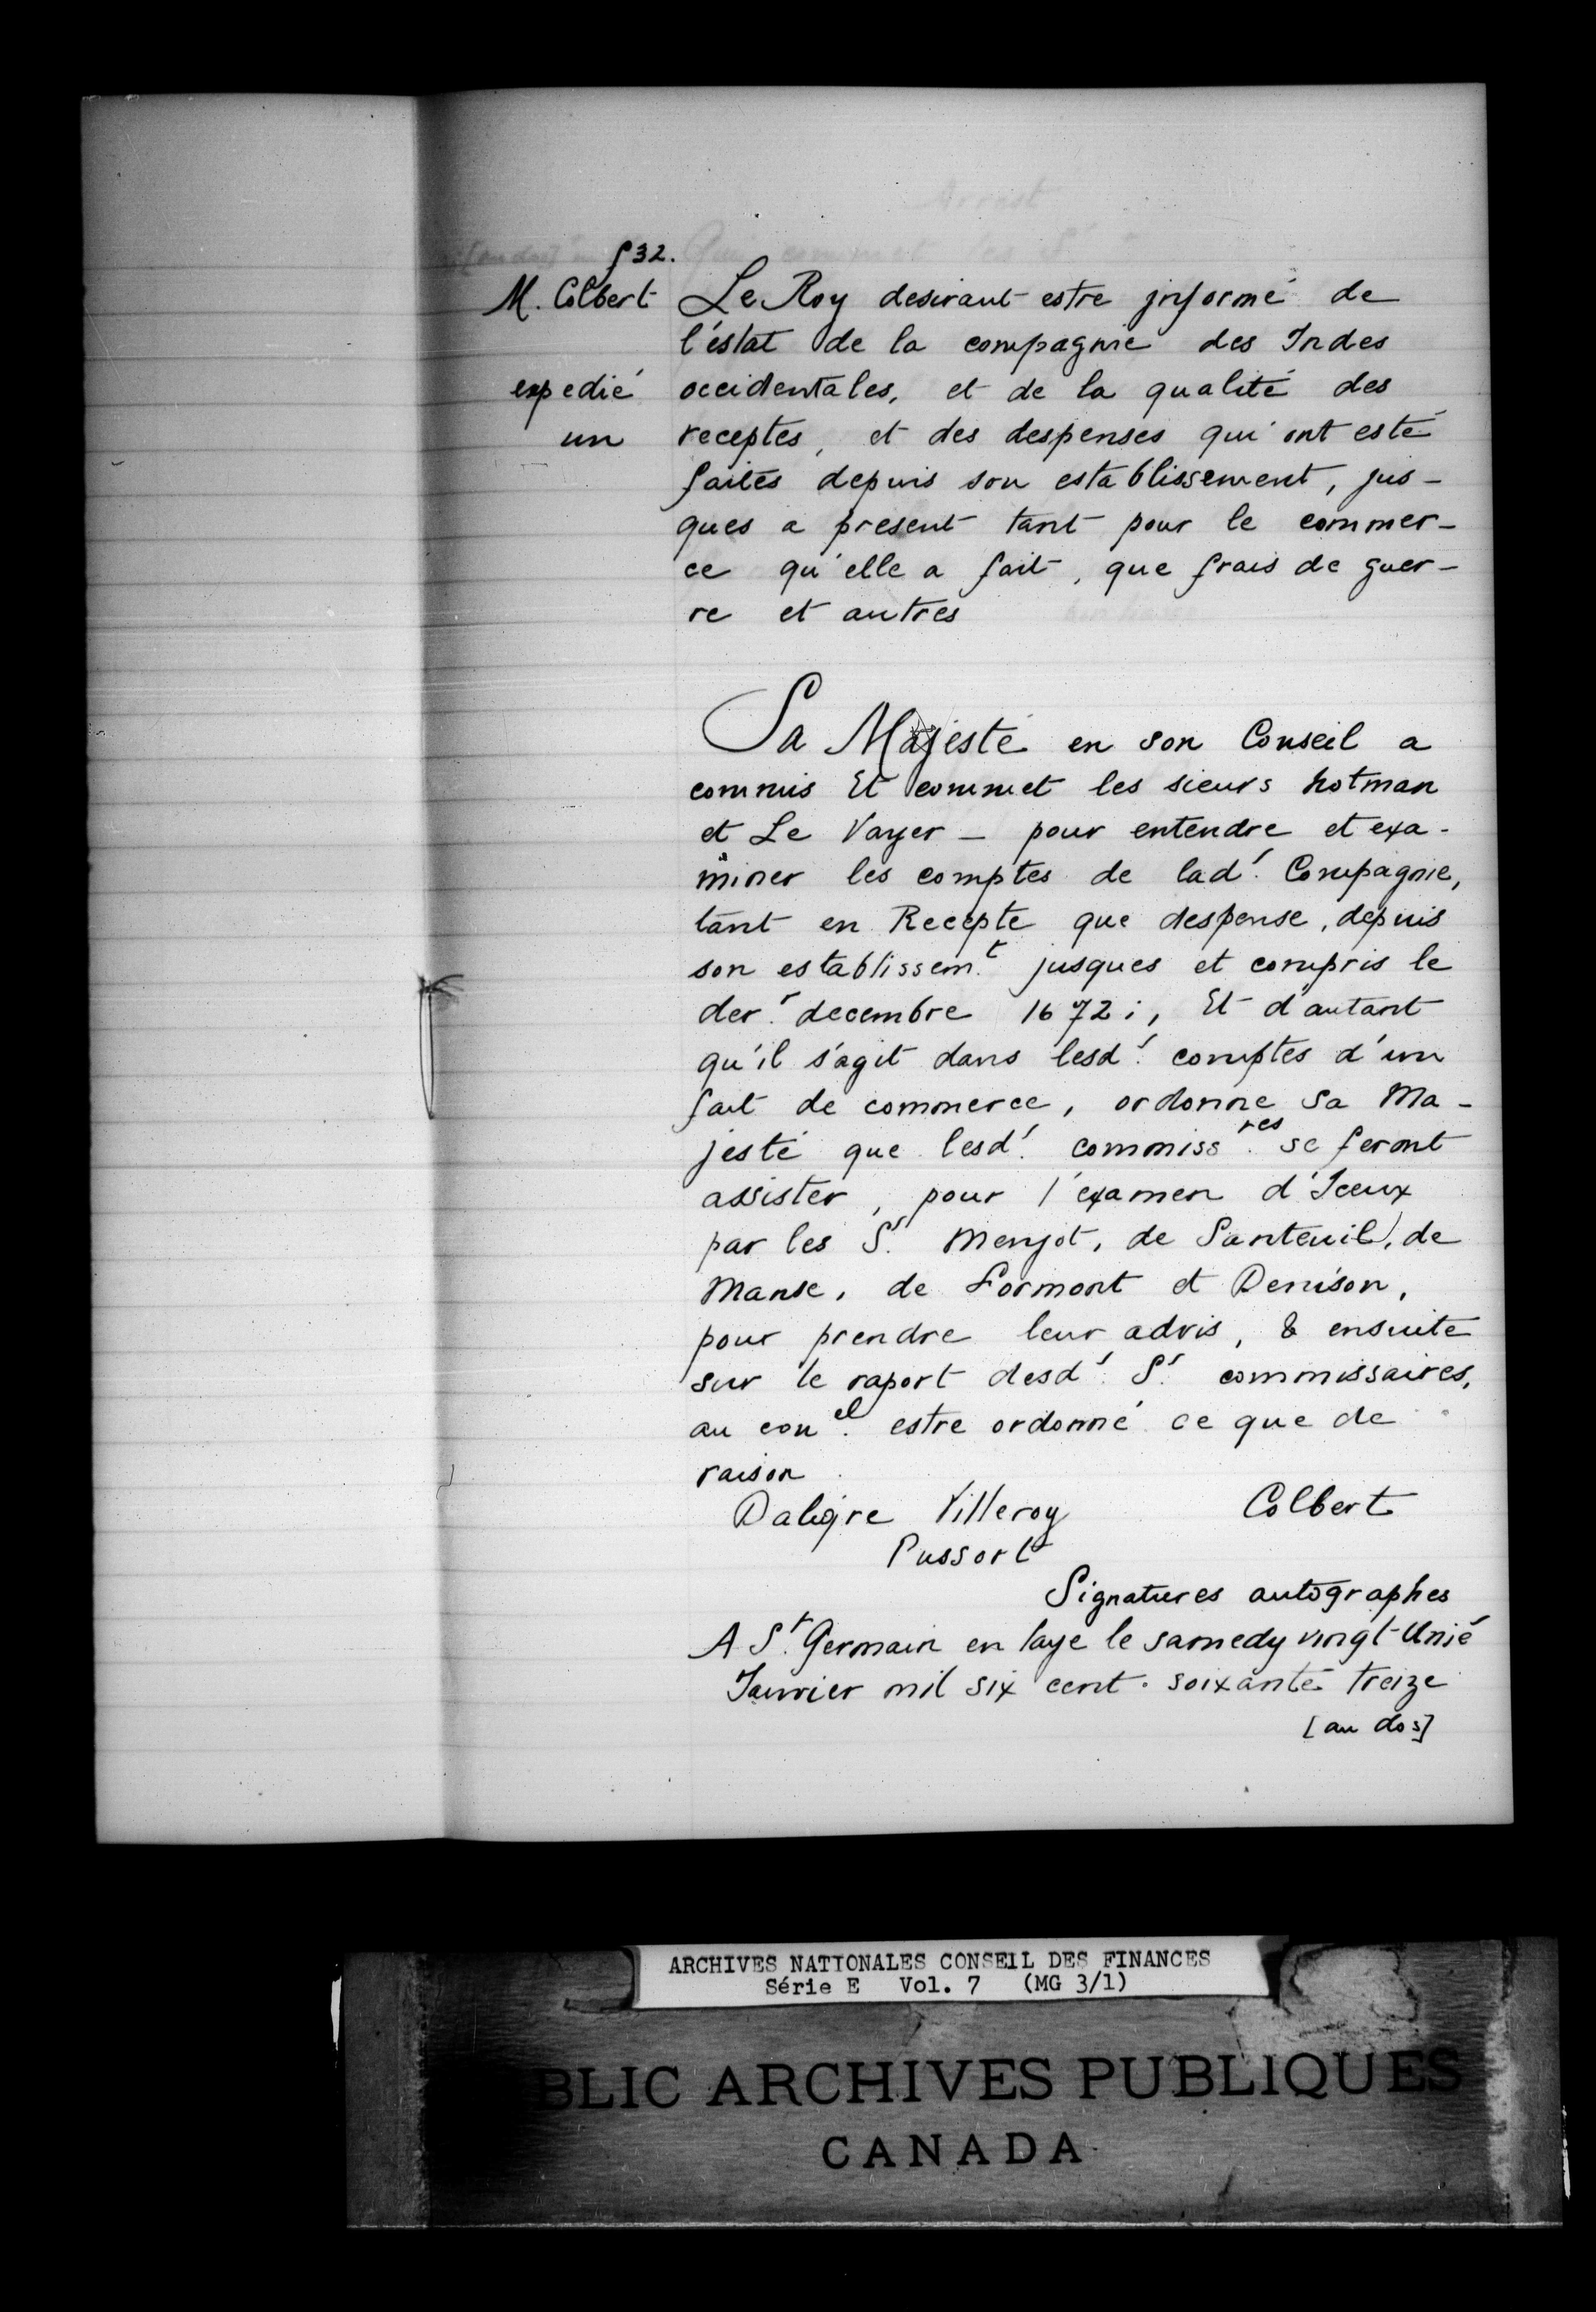 f 32.
M. Colbert
expedié
un
Le Roy desirant estre jnformé de
l'éstat de la compagnie des Indes
occidentales, et de la qualité des
receptes, et des despenses qui ont esté
faites depuis son establissement, jus-
ques a present tant pour le commer-
ce qu'elle a fait, que frais de guer-
re et autres
Sa Majesté en son Conseil a
commis Et commet les sieurs hotman
et Le Vayer - pour entendre et exa-
miner les comptes de lad'. Compagnie,
tant en Recepte que despense, depuis
son establissem.t jusques et compris le
der.r decembre 1672 ;, Et d'autant
qu'il s'agit dans lesd'. comptes d'un
fait de commerce, ordonne Sa Ma-
jesté que lesd'. commiss.res se feront
assister, pour l'examen d'Iceux
par les S.rs Menjot, de Santeuil, de
Manse, de Formont et Denison,
pour prendre leur advis, & ensuite
sur le raport desd'. S.rs commissaires,
au con.el estre ordonné ce que de
raison.
Daligre Villeroy Colbert
Pussort
Signatures autographes
A S.t Germain en laye le samedy vingt-Unié
Janvier mil six cent soixante treize
[au dos]
ARCHIVES NATIONALES CONSEIL DES FINANCES
Série E Vol. 7 (MG 3/1)
BLIC ARCHIVES PUBLIQUES
CANADA